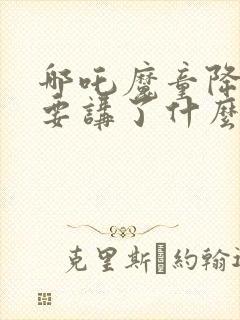 哪吒魔童降
要講了什麼
克里斯 約翰遜